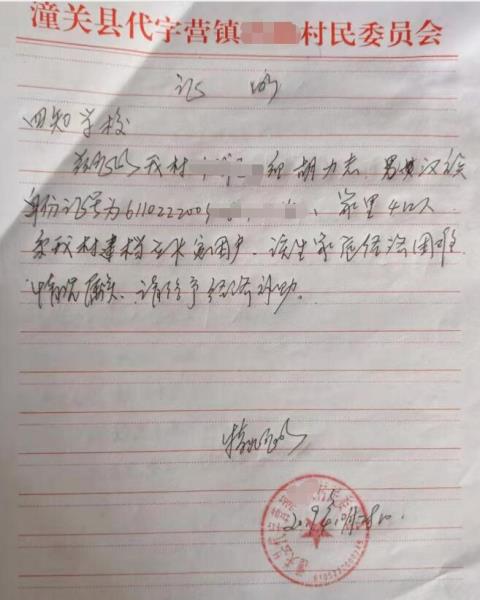 潼关县代字营镇 村民委员会
证明
四知学校
兹证明我村 组胡力志,男,汉族
身份证号为6110222009 、家里4口人
系我村建档立卡贫困户,该生家庭经济困难
情况属实、请给予经济补助。
特此证明
2019年 月 日